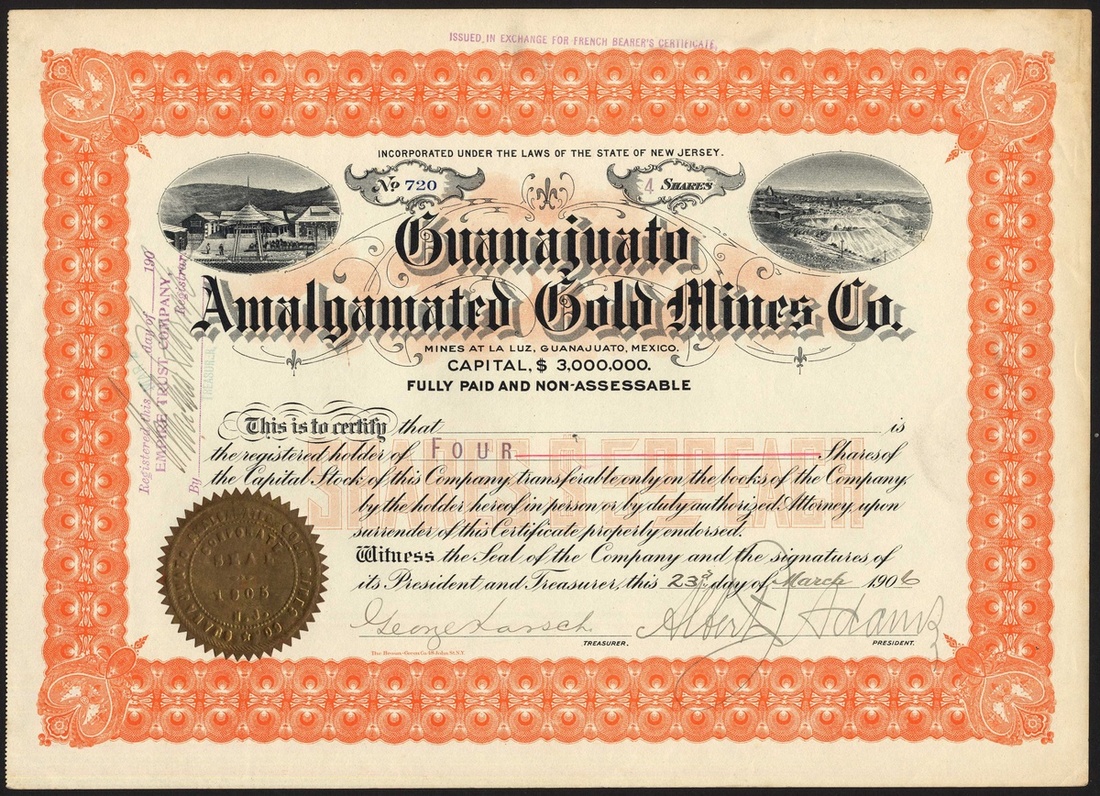 ISSUED IN EXCHANGE FOR FRENCH BEARER'S CERTIFICATE.
INCORPORATED UNDER THE LAWS OF THE STATE OF NEW JERSEY.
No 720
4 SHARES
Guanajuato
Amalgamated Gold Mines Co.
MINES AT LA LUZ, GUANAJUATO, MEXICO.
CAPITAL, $ 3,000,000.
FULLY PAID AND NON-ASSESSABLE
This is to certify that is
the registered holder of FOUR Shares of
the Capital Stock of this Company, transferable only on the books of the Company
by the holder hereof in person or by duly authorized Attorney, upon
surrender of this Certificate properly endorsed.
Witness the Seal of the Company and the signatures of
its President and Treasurer, this 23rd day of March 1906
George Karsch
Albert J Adams
TREASURER.
PRESIDENT.
SHARES $5.00 EACH
Registered this day of 190
EMPIRE TRUST COMPANY,
Registrar
By
TREASURER
SEAL
1905
N.J.